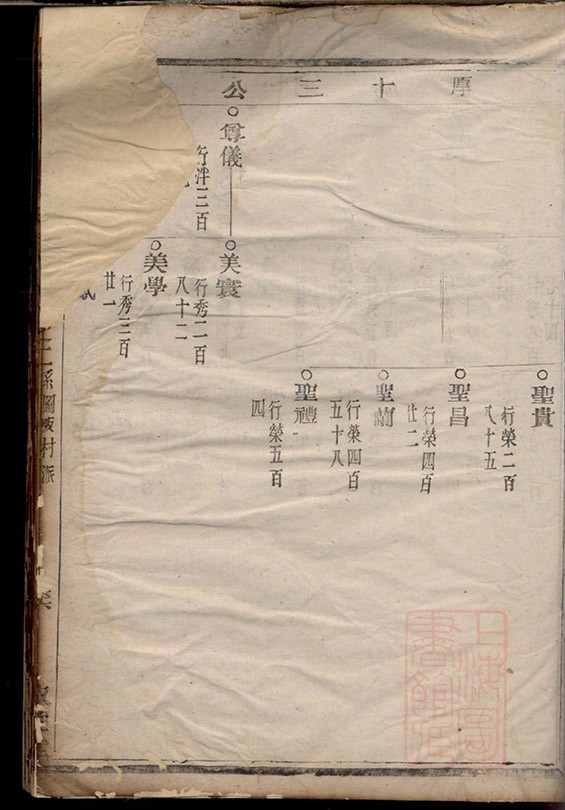 厚十三公
聖貴
行榮二百
八十五
聖昌
行榮四百
廿二
聖蘭
行榮四百
五十八
聖禮
行榮五百
四
尊儀
行泮三百
美寰
行秀二百
八十二
美學
行秀三百
廿一
系圖
村派
上海圖書館藏